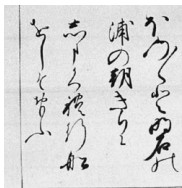 ほの／＼と明石の
浦の朝きりに
志まかくれ行舟
をしそおもふ